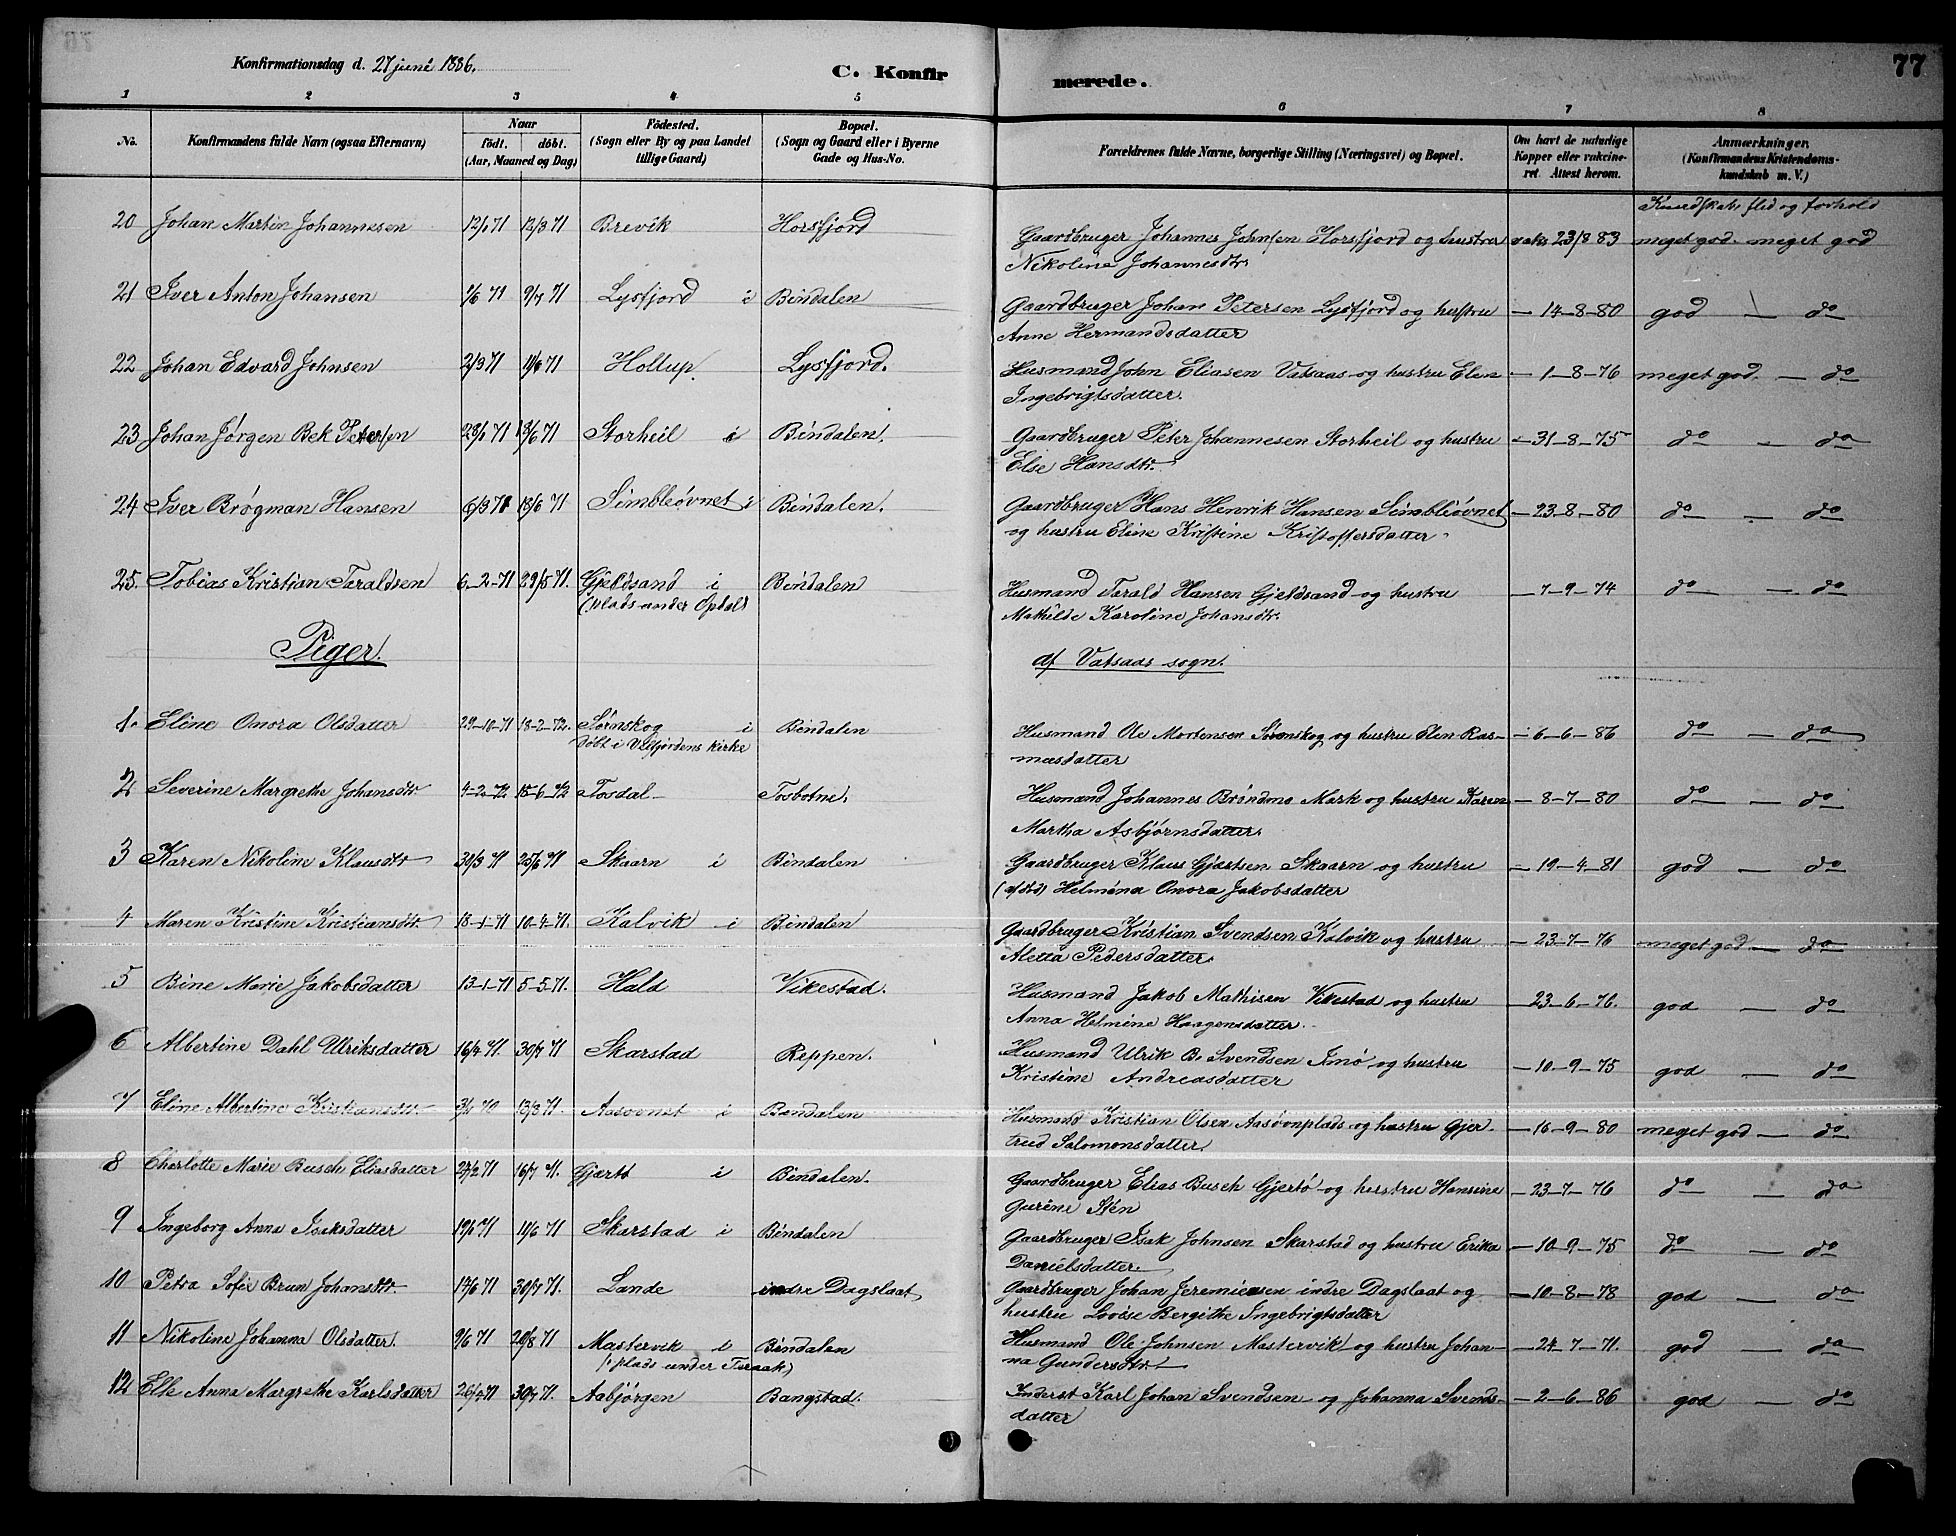 Konfirmationsdag d. 27 juni 1886.
C. Konfirmerede.
77
1 2 3 4 5 6 7 8
No.
Konfirmandens fulde Navn (ogsaa Efternavn)
Naar
født. døbt.
(Aar, Maaned og Dag)
Fødested.
(Sogn eller By og paa Landet
tillige Gaard)
Bopæl.
(Sogn og Gaard eller i Byerne
Gade og Hus-No.
Forældrenes fulde Navne, borgerlige Stilling (Næringsvei) og Bopæl.
Om havt de naturlige
Kopper eller vakcine-
ret. Attest herom.
Anmærkninger.
(Konfirmandens Kristendoms-
kundskab m. V.)
Kundskab, flid og forhold
20 Johan Martin Johannesen 12/1 71 12/3 71 Brevik Horsfjord Gaardbruger Johannes Johnsen Horsfjord og hustru vakc 23/8 83 meget god. meget god
Nikoline Johannesdtr.
21 Iver Anton Johansen 1/6 71 9/7 71 Lysfjord i Bindalen Gaardbruger Johan Petersen Lysfjord og hustru — 14-8-80 god — do
Anne Hermandsdatter
22 Johan Edvard Johnsen 2/3 71 11/6 71 Hollup. Lysfjord. Husmand John Eliasen Vatsaas og hustru Elen — 1-8-76 meget god. — do
Ingebrigtsdatter.
23 Johan Jørgen Bek Petersen 28/1 71 18/6 71 Storheil i Bindalen. Gaardbruger Peter Johannesen Storheil og hustru — 31-8-75 do — do
Else Hansdtr.
24 Iver Brøgman Hansen 6/3 71 18/6 71 Simbleøvnet i Bindalen. Gaardbruger Hans Henrik Hansen Simbleøvnet — 23-8-80 do — do
og hustru Eline Kristine Kristoffersdatter.
25. Tobias Kristian Taraldsen 6-2-71 29/5 71. Gjeldsand i Bindalen Husmand Tarald Hansen Gjeldsand og hustru — 7-9-74 do — do
(plads under Opdal)
Mathilde Karoline Johansdtr.
Piger.
af Vatsaas sogn.
1. Eline Onora Olsdatter 29-10-71 18-2-72. Sørnskog i Bindalen Husmand Ole Mortensen Sørnskog og hustru Elen Ras- — 6-6-86 do — do
døbt i Velfjordens kirke
musdatter
2 Severine Margrethe Johansdtr. 4-2-72 15-6-72 Tosdal Tosbotne. Husmand Johannes Brøndmo Mark og hustru Karen — 8-7-80 do — do
Martha Asbjørnsdatter.
3 Karen Nikoline Klausdtr 30/3 71 25/6 71 Skaarn i Bindalen Gaardbruger Klaus Gjærtsen Skaarn og hustru — 19-4-81 god — do
(afdød) Helmina Onora Jakobsdatter
4 Maren Kristine Kristiansdtr. 18-1-71 10-4-71. Kalvik i Bindalen Gaardbruger Kristian Svendsen Kalvik og hustru — 23-7-76 meget god — do
Aletta Pedersdatter.
5 Bine Marie Jakobsdatter 13-1-71 5-5-71. Hald Vikestad. Husmand Jakob Mathisen Vikestad og hustru — 23-6-76. god — do
Anna Helmine Haagensdatter.
6 Albertine Dahl Ulriksdatter 16/4 71. 30/7 71 Skarstad Reppen. Husmand Ulrik B. Svendsen Imø og hustru — 10-9-75 god — do
Kristine Andreasdatter
7 Eline Albertine Kristiansdtr. 71. Aasovnet i Bindalen Husmand Kristian Olsen Aasøvnplads og hustru Gjer- — 16-9-80 meget god — do
trud Salomonsdatter.
8 Charlotte Marie Busch Eliasdatter 27/2 71 16/7 71. Gjærtø i Bindalen. Gaardbruger Elias Busch Gjertø og hustru Hansine — 23-7-76 do — do
Gurine Stén
9 Ingeborg Anna Isaksdatter 19/1 71 11/6 71 Skarstad i Bindalen Gaardbruger Isak Johnsen Skarstad og hustru Erika — 10-9-75 do — do
Danielsdatter.
10 Petra Sofie Brun Johansdtr. 17/6 71 30/7 71. Lande indre Dagslaat Gaardbruger Johan Jeremiesen indre Dagslaat og — 10-8-78 god — do
hustru Lovise Bergithe Ingebrigtsdatter
11 Nikoline Johanna Olsdatter. 9/6 71 20/8 71 Mastervik i Bindalen Husmand Ole Johnsen Mastervik og hustru Johan- — 24-7-71. god — do
(plads under Teraak)
na Gundersdtr.
12 Elle Anna Margrethe Karlsdatter 26/5 71 30/7 71. Aabjørgen Bangstad. Inderst Karl Johan Svendsen og Johanna Svends- — 2-6-86 god — do
datter